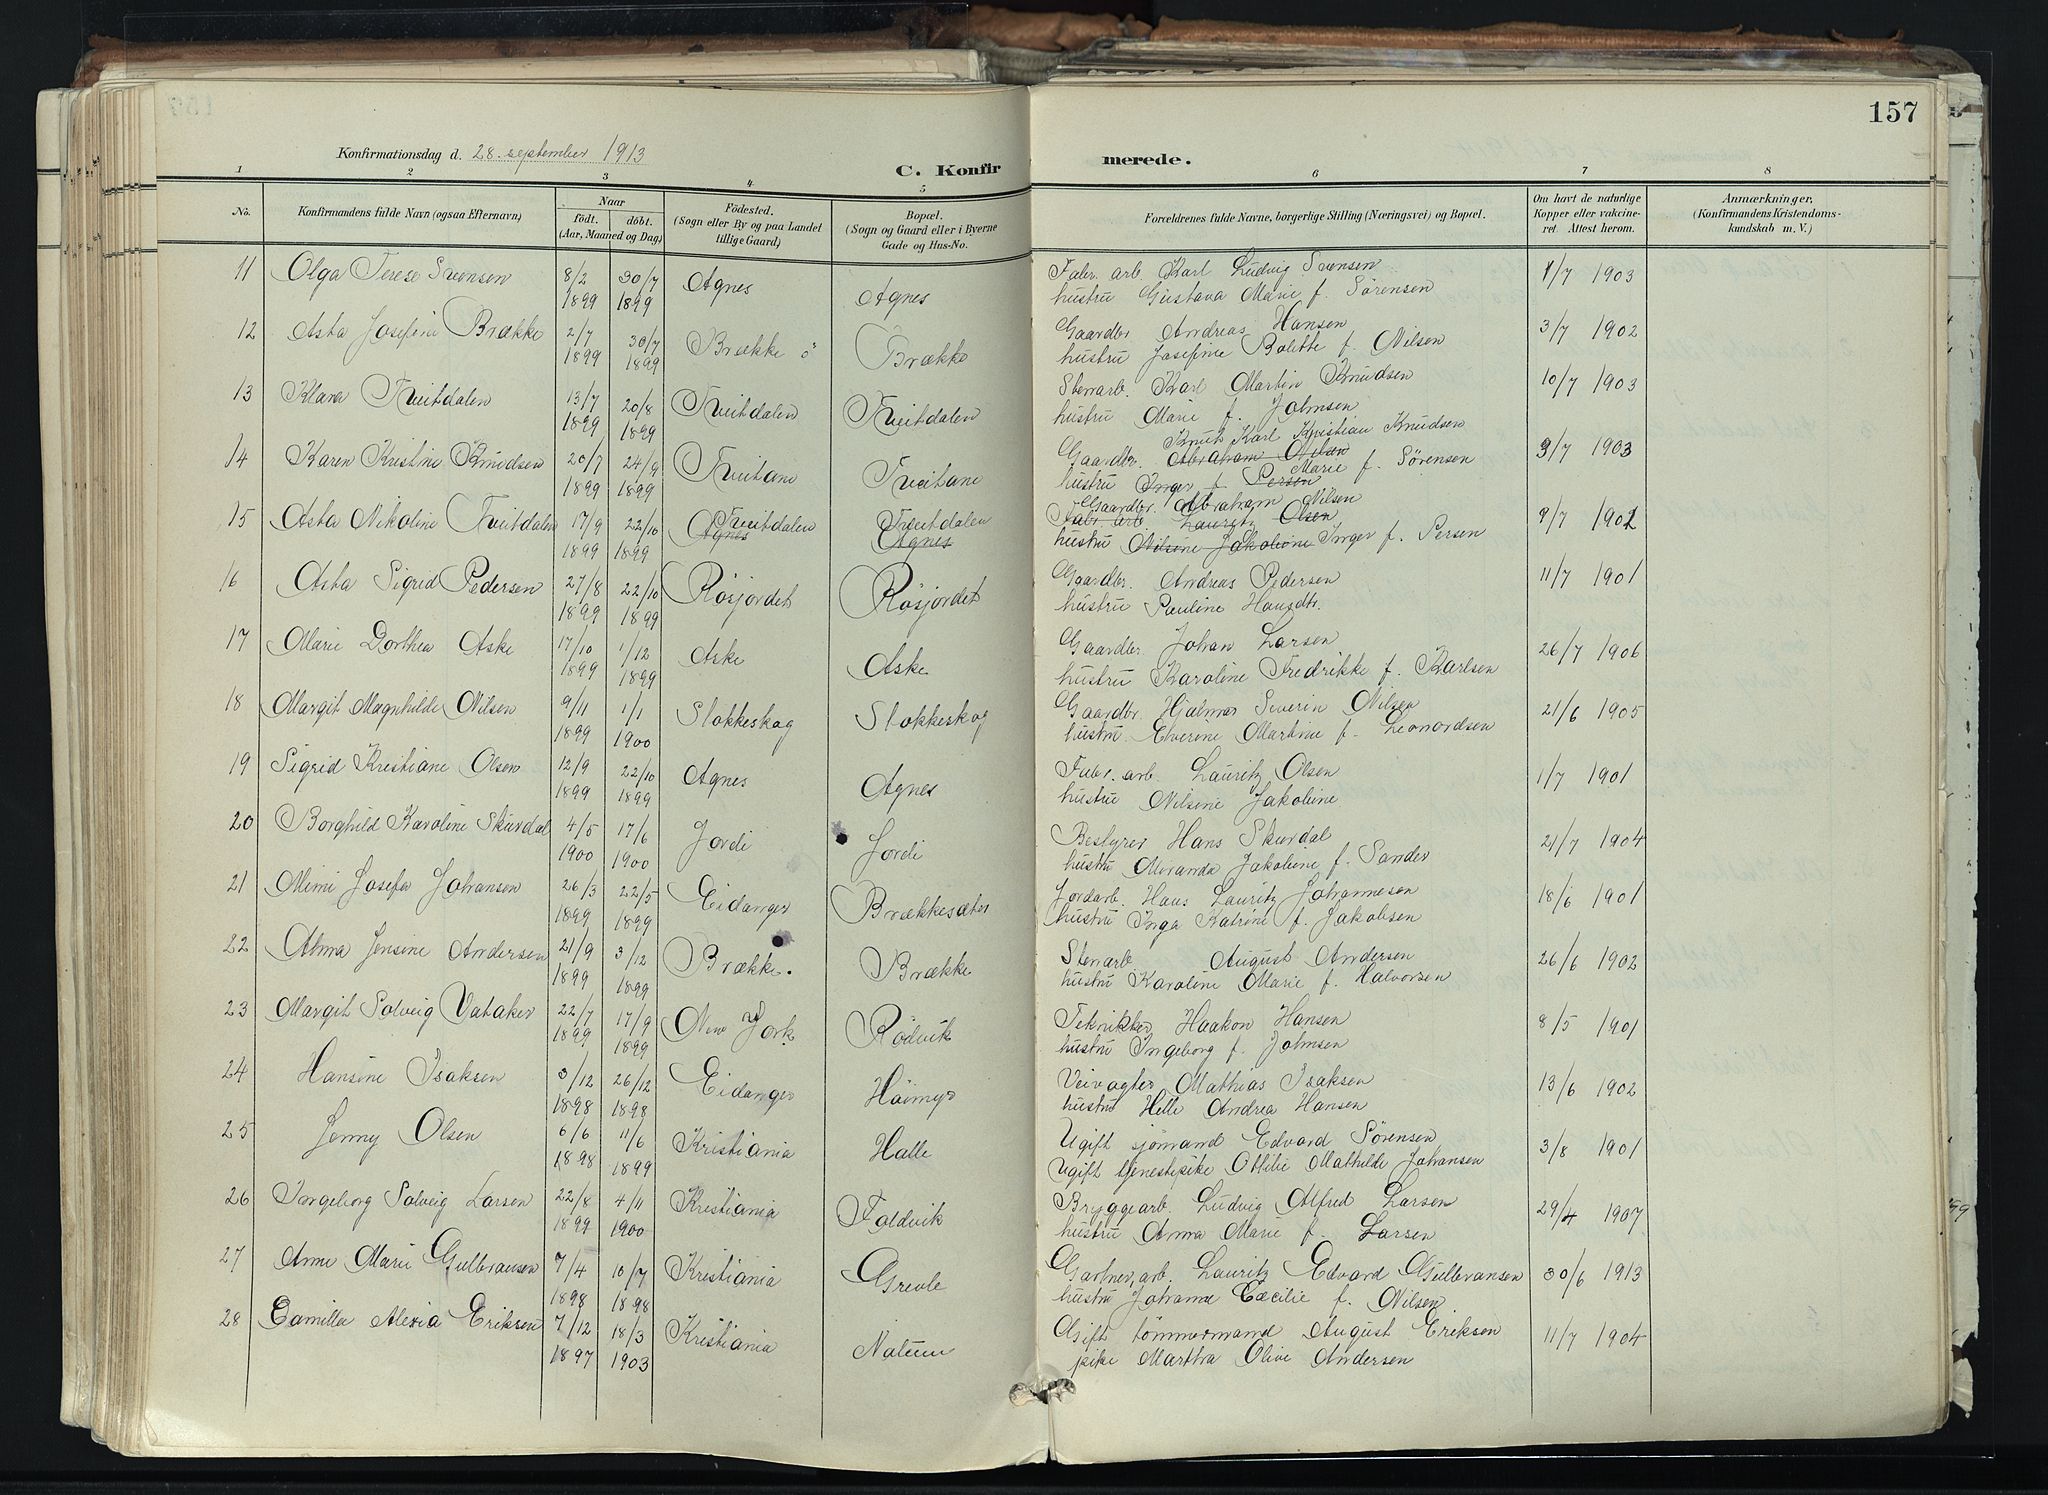 157
Konfirmationsdag d. 28. september 1913
C. Konfirmerede.
1 2 3 4 5 6 7 8
No. Konfirmandens fulde Navn (ogsaa Efternavn) Naar födt. döbt. (Aar, Maaned og Dag) Födested. (Sogn eller By og paa Landet tillige Gaard) Bopæl. (Sogn og Gaard eller i Byerne Gade og Hus-No. Forældrenes fulde Navne, borgerlige Stilling (Næringsvei) og Bopæl. Om havt de naturlige Kopper eller vakcineret. Attest herom. Anmærkninger, (Konfirmandens Kristendomskundskab m. V.)
11 Olga Terese Svensen 8/2 1899 30/7 1899 Agnes Agnes Fabr. arb Karl Ludvig Svensen 1/7 1903
hustru Gustava Marie f. Sørensen
12 Asta Josefine Brække 2/7 1899 30/7 1899 Brække ö Brække Gaardbr Andreas Hansen 3/7 1902
hustru Josefine Bolette f. Nilsen
13 Klara Tveitdalen 13/7 1899 20/8 1899 Tveitdalen Tveitdalen Stenarb. Karl Martin Knudsen 10/7 1903
hustru Marie f. Johnsen
14 Karen Kristine Knudsen 20/7 1899 24/9 1899 Tveitane Tveitane Knut Karl Kristian Knudsen
Gaardbr. Abraham Nilsen 3/7 1903
hustru Inger f. Persen Marie f. Sørensen
15 Asta Nikoline Tveitdalen 17/9 1899 22/10 1899 Tveitdalen Agnes Tveitdalen Agnes Gaardbr. Abraham Nilsen
Fabr arb. Lauritz Olsen 9/7 1902
hustru Nilsine Jakobine Inger f. Persen
16 Asta Sigrid Pedersen 27/8 1899 22/10 1899 Røsjordet Røsjordet Gaardbr. Andreas Pedersen 11/7 1901
hustru Pauline Hansdtr.
17 Marie Dorthea Aske 17/10 1899 1/12 1899 Aske Aske Gaardbr Johan Larsen 26/7 1906
hustru Karoline Fredrikke f. Karlsen
18 Margit Magnhilde Nilsen 9/11 1899 1/1 1900 Stokkeskog Stokkeskog Gaardbr. Hjalmar Severin Nilsen 21/6 1905
hustru. Elverine Martine f. Leonordsen
19 Sigrid Kristiane Olsen 12/9 1899 22/10 1899 Agnes Agnes Fabr. arb. Lauritz Olsen 1/7 1901
hustru Nilsine Jakobine
20 Borghild Karoline Skurdal 4/5 1900 17/6 1900 Jordi Jordi Bestyrer Hans Skurdal 21/7 1904
hustru Miranda Jakobine f. Sander
21 Mimi Josefa Johansen 26/3 1899 22/5 1899 Eidanger Brækkesæter Jordarb. Hans Lauritz Johannesen 18/6 1901
hustru Inga Katrine f. Jakobsen
22 Alma Jensine Andersen 21/9 1899 3/12 1899 Brække. Brække Stenarb August Andersen 26/6 1902
hustru Karoline Marie f. Halvorsen
23 Margit Solveig Vataker 22/7 1899 17/9 1899 New York Rødvik Tekniker Haakon Hansen 8/5 1901
hustru Ingeborg f. Johnsen
24 Hansine Isaksen 3/12 1898 26/12 1898 Eidanger Höimyr Veivogter Mathias Isaksen 13/6 1902
hustru Helle Andrea Hansen
25 Jenny Olsen 6/6 1898 11/6 1899 Kristiania Halle Ugift sjömand Edvard Sørensen 3/8 1901
Ugift tjenestepike Ottilie Mathilde Johansen
26 Ingeborg Solveig Larsen 22/8 1899 4/11 1900 Kristiania Foldvik Bryggearb. Ludvig Alfred Larsen 29/4 1907
hustru Anna Marie f. Larsen
27 Anne Marie Gulbransen 7/4 1898 10/7 1898 Kristiania Grevle Gartner. arb. Lauritz Edvard Gulbransen 30/6 1913
hustru Johanne Cæcilie f. Nilsen.
28 Camilla Alexia Eriksen 7/12 1897 18/3 1903 Kristiania Nalum Gift tömmermand August Eriksen 11/7 1904
pike Martha Olive Andersen